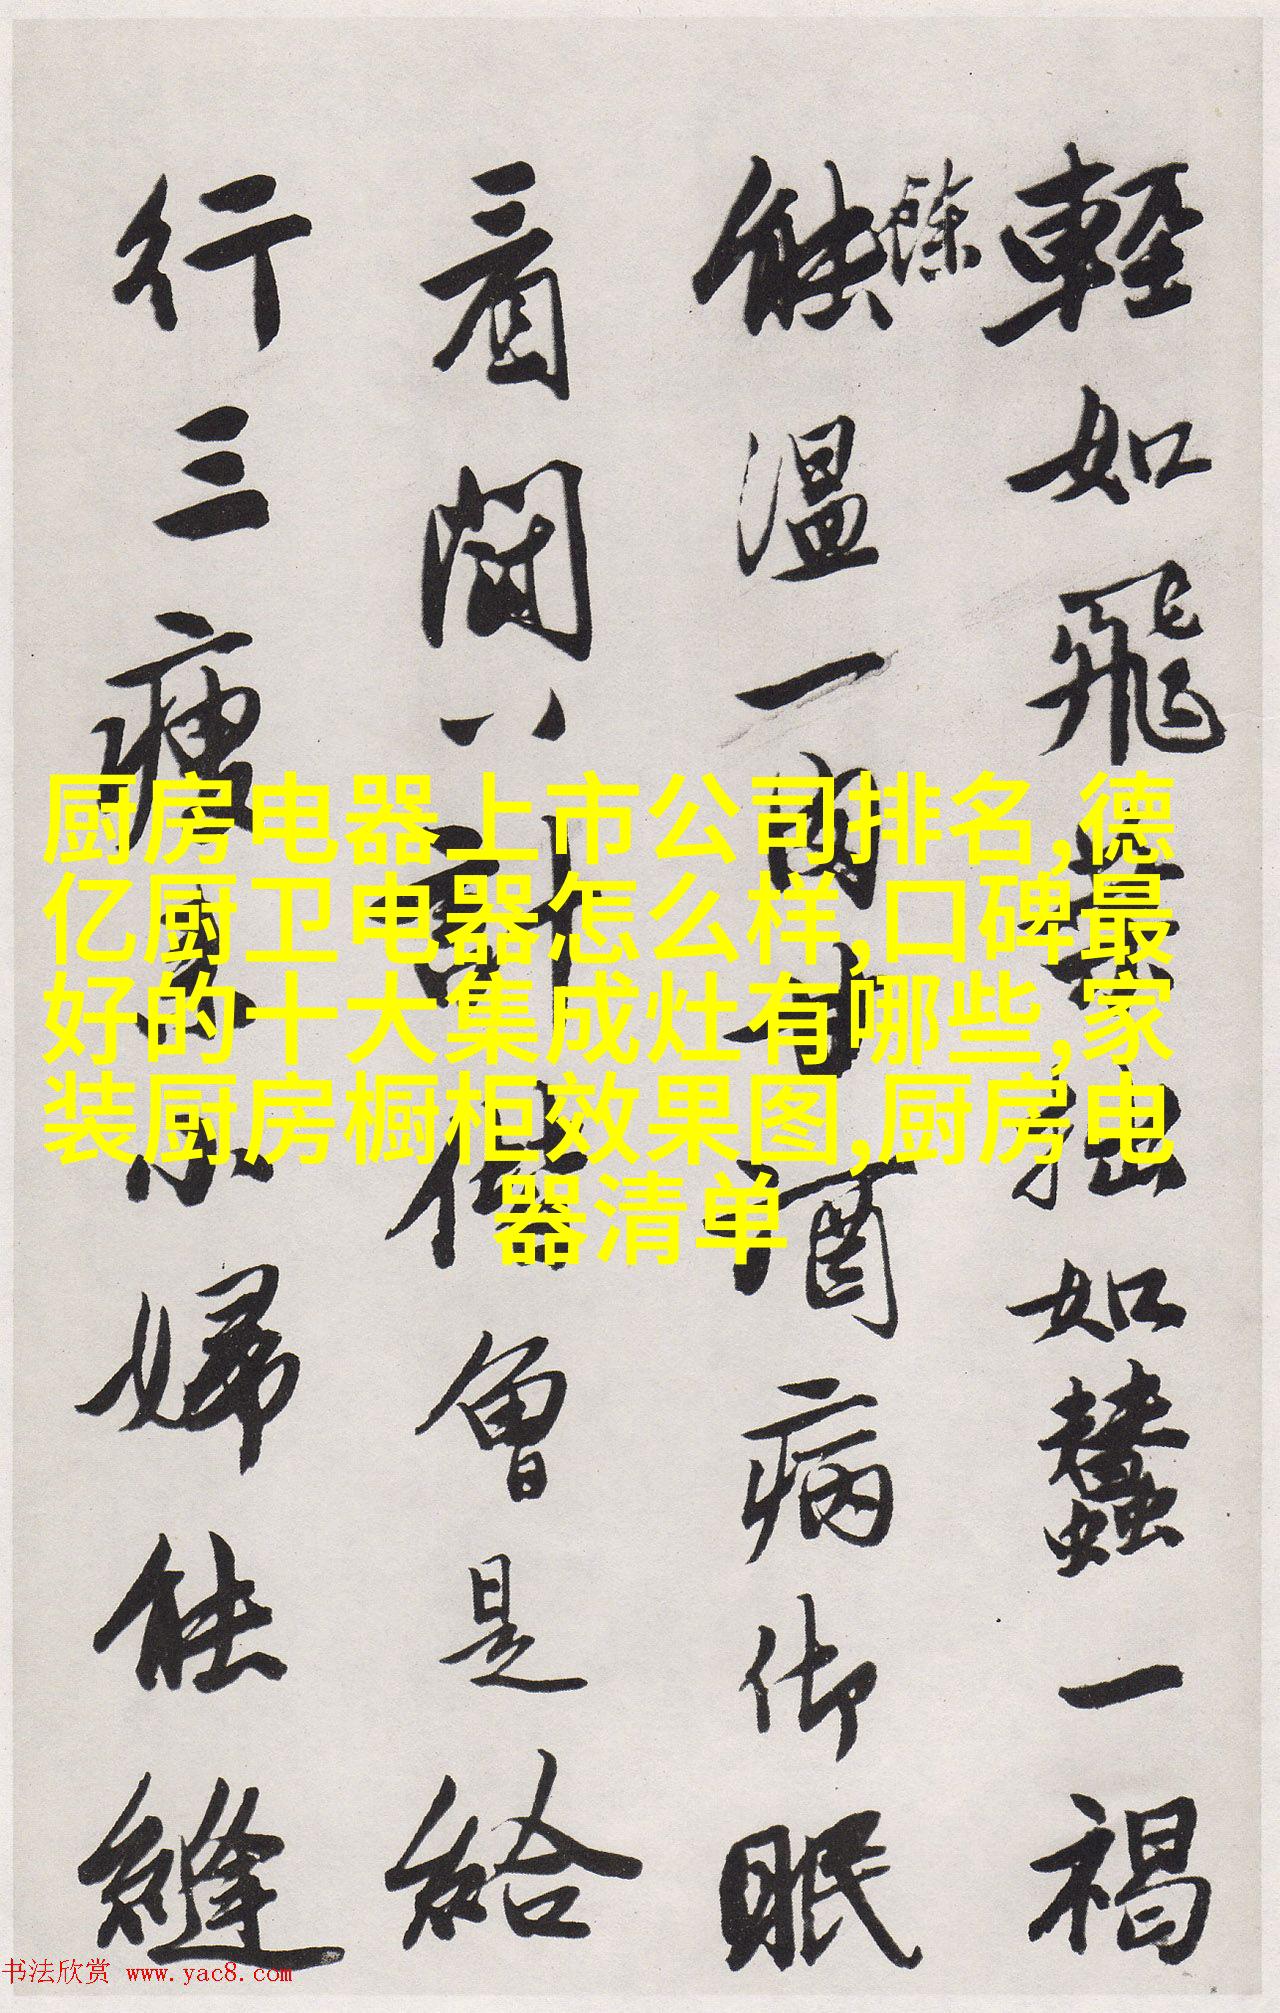 輕如飛拙如蠶一褐
餘
能溫一肉病御眠
看計曾是給
行三小婦能縫
厨房电器上市公司排名,德
亿厨卫电器怎么样,口碑最
好的十大集成灶有哪些,家
装厨房橱柜效果图,厨房电
器清单
书法欣赏 www.yac8.com